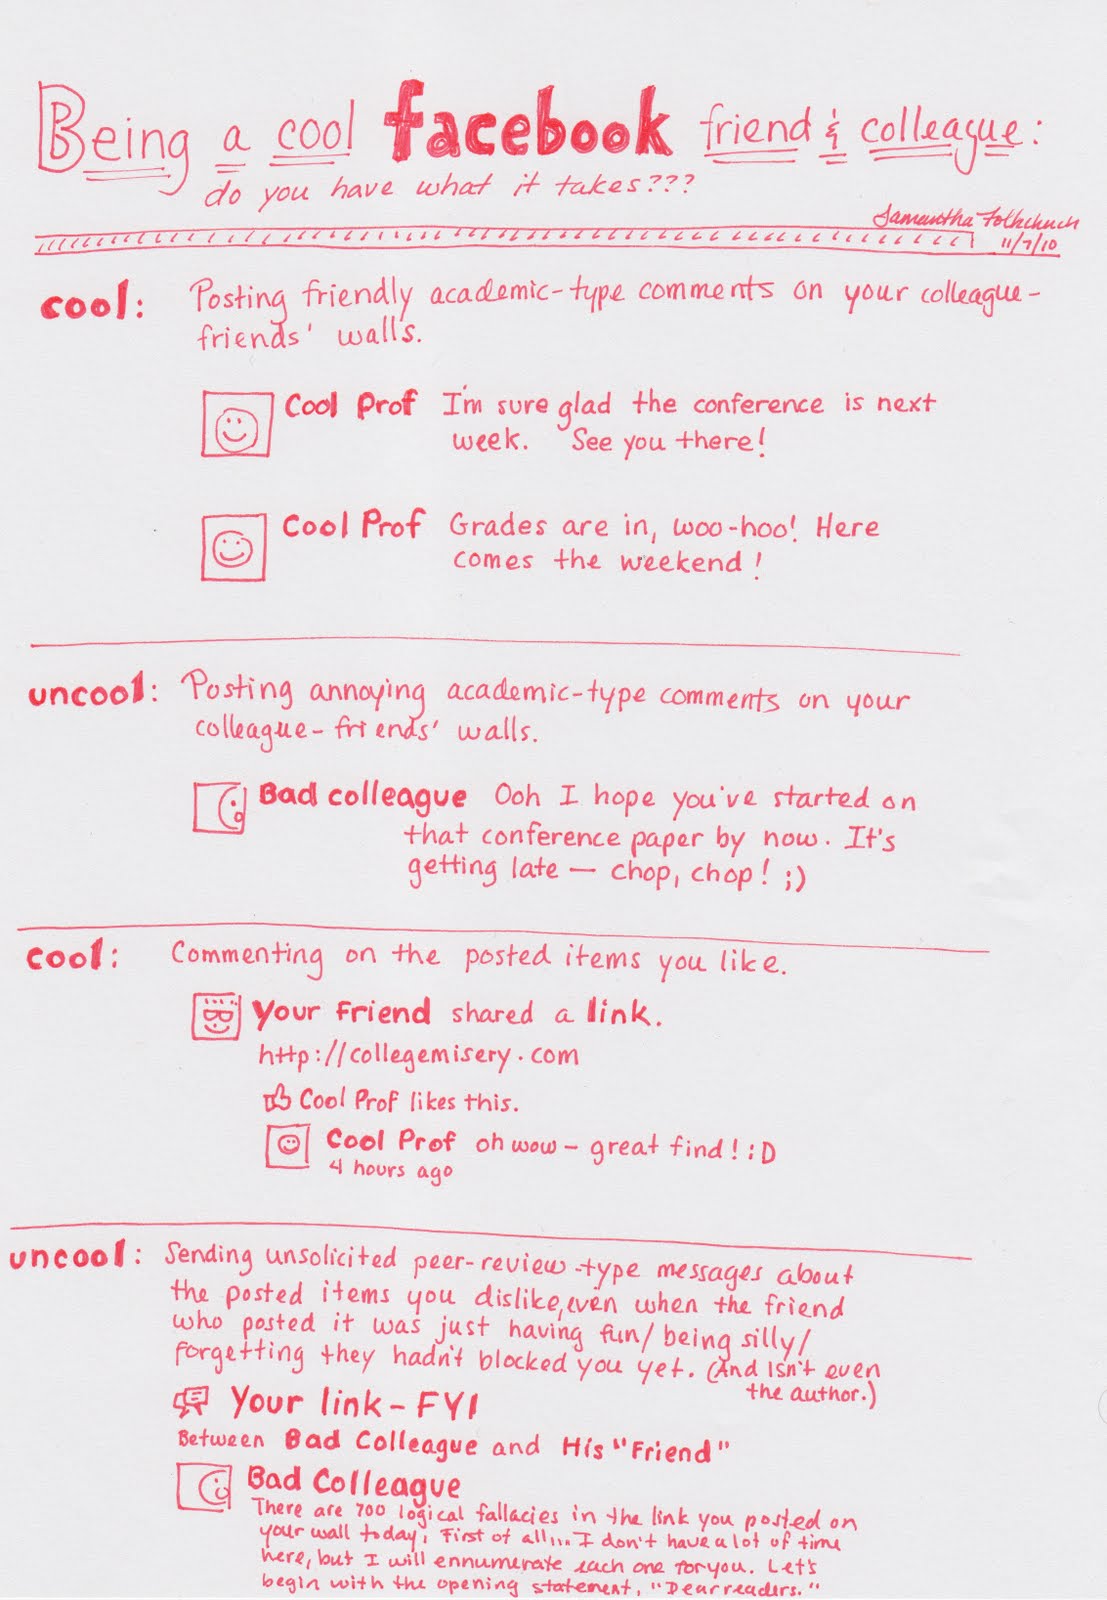 Being a cool facebook friend & colleague:
do you have what it takes???
Samantha
11/7/10
cool: Posting friendly academic-type comments on your colleague-
friends' walls.
Cool Prof I'm sure glad the conference is next
week. See you there!
Cool Prof Grades are in, woo-hoo! Here
comes the weekend!
uncool: Posting annoying academic-type comments on your
colleague-friends' walls.
Bad colleague Ooh I hope you've started on
that conference paper by now. It's
getting late — chop, chop! ;)
cool: Commenting on the posted items you like.
Your Friend shared a link.
http://collegemisery.com
Cool Prof likes this.
Cool Prof oh wow - great find! :D
4 hours ago
uncool: Sending unsolicited peer-review-type messages about
the posted items you dislike, even when the friend
who posted it was just having fun/being silly/
forgetting they hadn't blocked you yet. (And isn't even
the author.)
Your link - FYI
Between Bad Colleague and His "Friend"
Bad Colleague
There are 700 logical fallacies in the link you posted on
your wall today. First of all... I don't have a lot of time
here, but I will ennumerate each one for you. Let's
begin with the opening statement, "Dear readers."